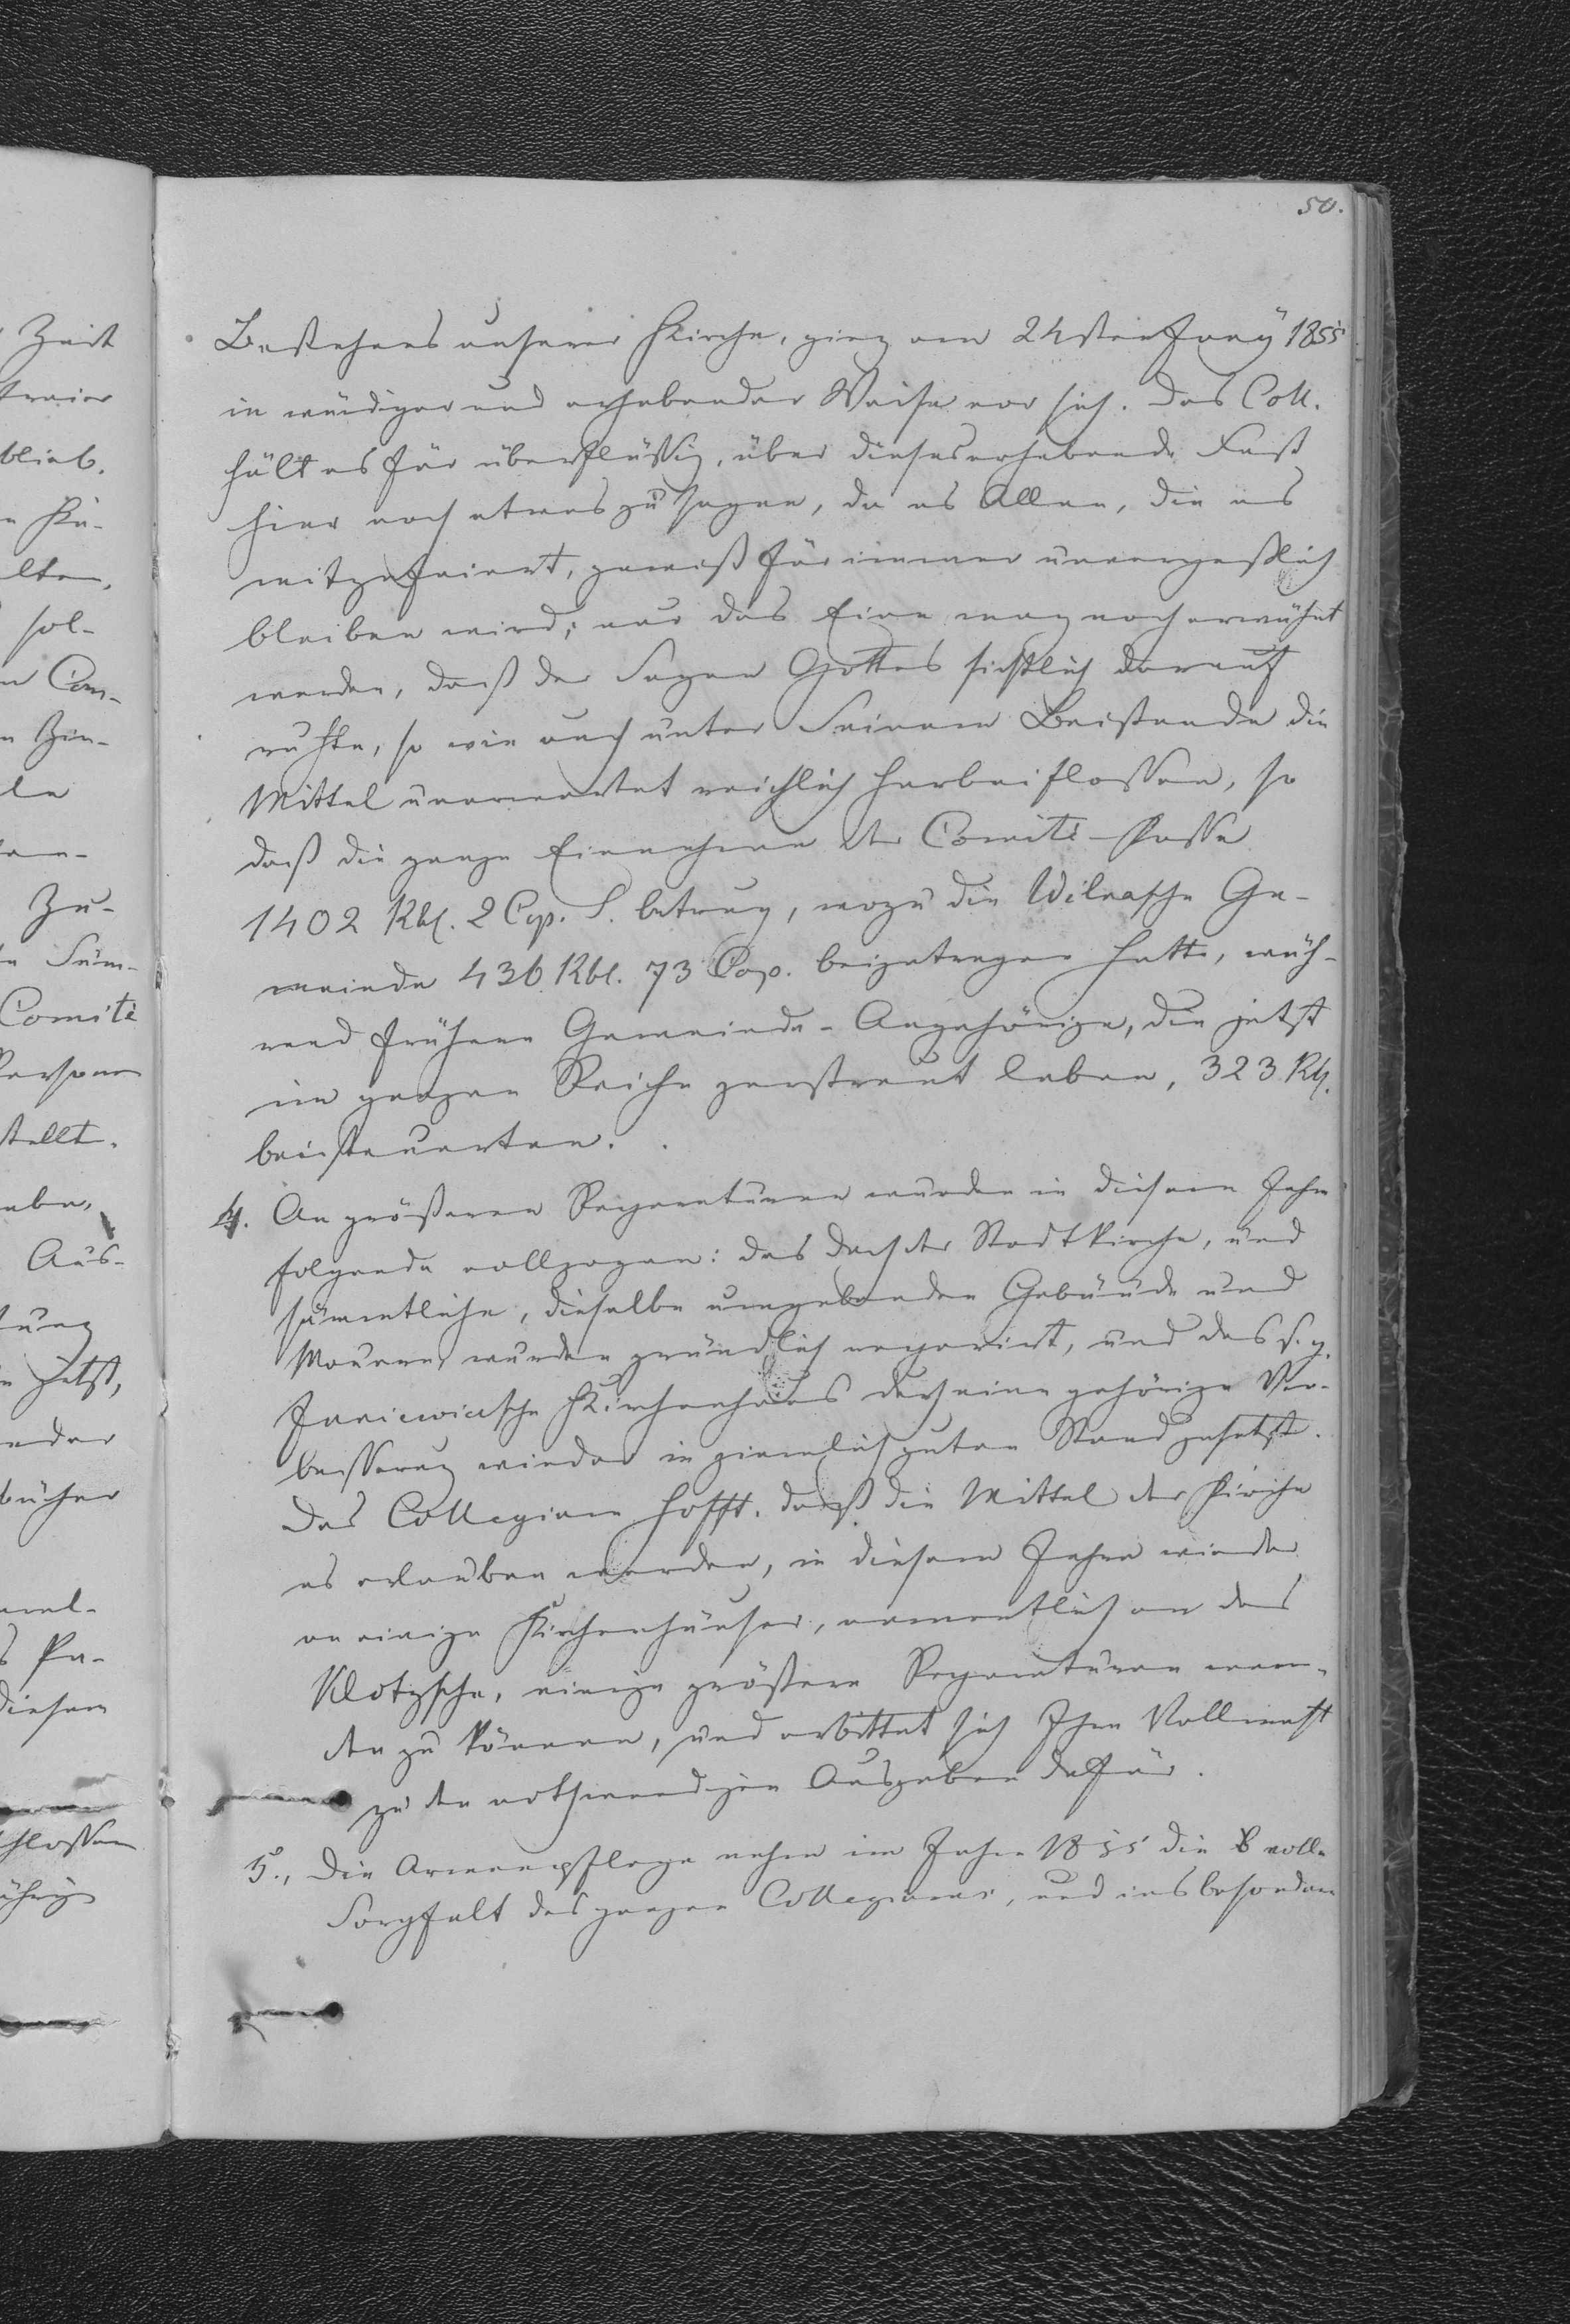 50.
Bestehens unserer Kirche, ging am 24sten Juny 1855
in würdiger und erhebender Weise vor sich. Das Coll.
hält es für überflüssig, über dieses erhebende Fest
hier noch etwas zu sagen, da es Allen, die es
mitgefeiert, gewiß für immer unvergeßlich
bleiben wird; nur das Eine mag noch erwähnt
werden, daß der Segen Gottes sichtlich darauf
ruhte, so wie auch unter Seinem Beistande die
Mittel unerwartet reichlich herbeiflossen, so
daß die ganze Einnahme der Comité-Kasse
1402 Rbl. 2 Cop. S. betrug, wozu die Wilnasche Ge-
meinde 436 Rbl. 73 Cop. beigetragen hatte, wäh-
rend frühere Gemeinde-Angehörige, die jetzt
im ganzen Reiche zerstreut leben, 323 Rbl.
beisteuerten.
4. An größeren Reparaturen wurden in diesem Jahre
folgende vollzogen: das Dach der Stadtkirche, und
sämmtliche, dieselbe umgebenden Gebäude und
Mauern wurden gründlich reparirt, und das s. g.
Kirchenhaus durch eine gehörige Ver-
besserung wieder in ziemlich guten Stand gesetzt.
Das Collegium hofft, daß die Mittel der Kirche
es erlauben werden, in diesem Jahre wieder
an einige Kirchenhäuser, namentlich an das
Klotzsche, einige größere Reparaturen wen-
den zu können, und erbittet sich Ihre Vollmacht
zu den nothwendigen Ausgaben dafür.
5., Die Armenpflege nahm im Jahre 1855 die volle
Sorgfalt des ganzen Collegiums, und insbesondere
Zeit
blieb.
Kir-
sol-
Com-
Zu-
Sum-
Comité
Person
stellt.
Aus-
jetzt,
bücher
diesem